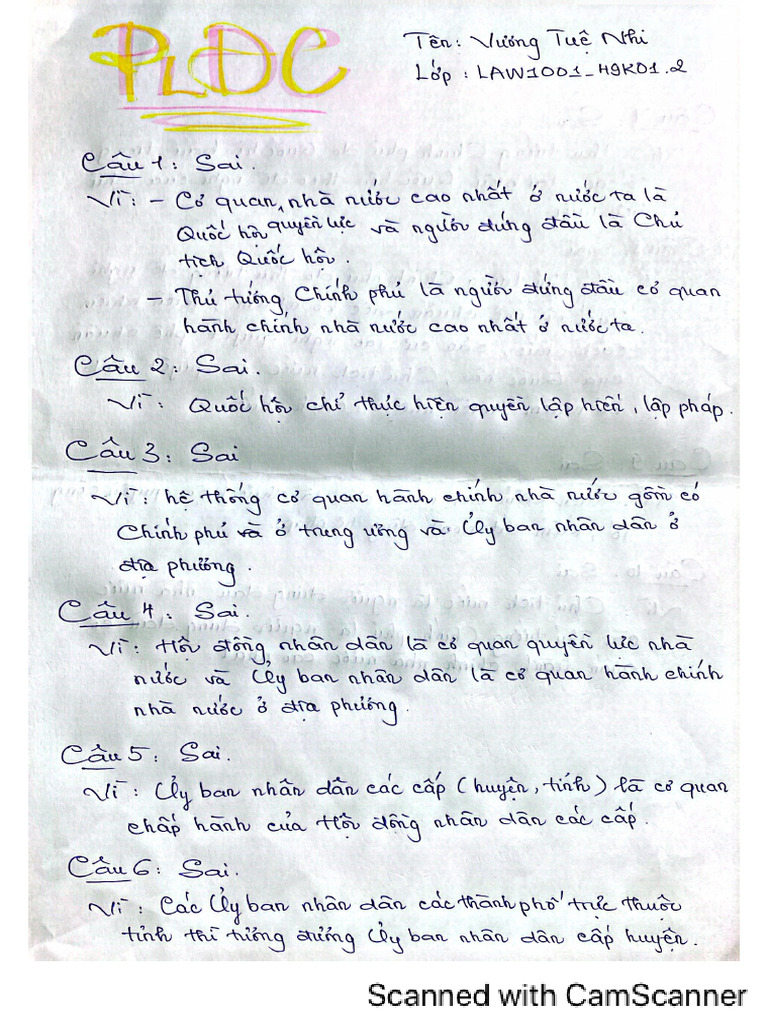 PLĐC
Tên: Vương Tuệ Nhi
Lớp: LAW1001_49K01.2
Câu 1: Sai.
Vì: - Cơ quan nhà nước cao nhất ở nước ta là
Quốc hội quyền lực và người đứng đầu là Chủ
tịch Quốc hội.
- Thủ tướng Chính phủ là người đứng đầu cơ quan
hành chính nhà nước cao nhất ở nước ta.
Câu 2: Sai.
Vì: Quốc hội chỉ thực hiện quyền lập hiến, lập pháp.
Câu 3: Sai
Vì: hệ thống cơ quan hành chính nhà nước gồm có
Chính phủ và ở trung ương và Ủy ban nhân dân ở
địa phương.
Câu 4: Sai.
Vì: Hội đồng nhân dân là cơ quan quyền lực nhà
nước và Ủy ban nhân dân là cơ quan hành chính
nhà nước ở địa phương.
Câu 5: Sai.
Vì: Ủy ban nhân dân các cấp (huyện, tỉnh) là cơ quan
chấp hành của Hội đồng nhân dân các cấp.
Câu 6: Sai.
Vì: Các Ủy ban nhân dân các thành phố trực thuộc
tỉnh thì tương đương Ủy ban nhân dân cấp huyện.
Scanned with CamScanner